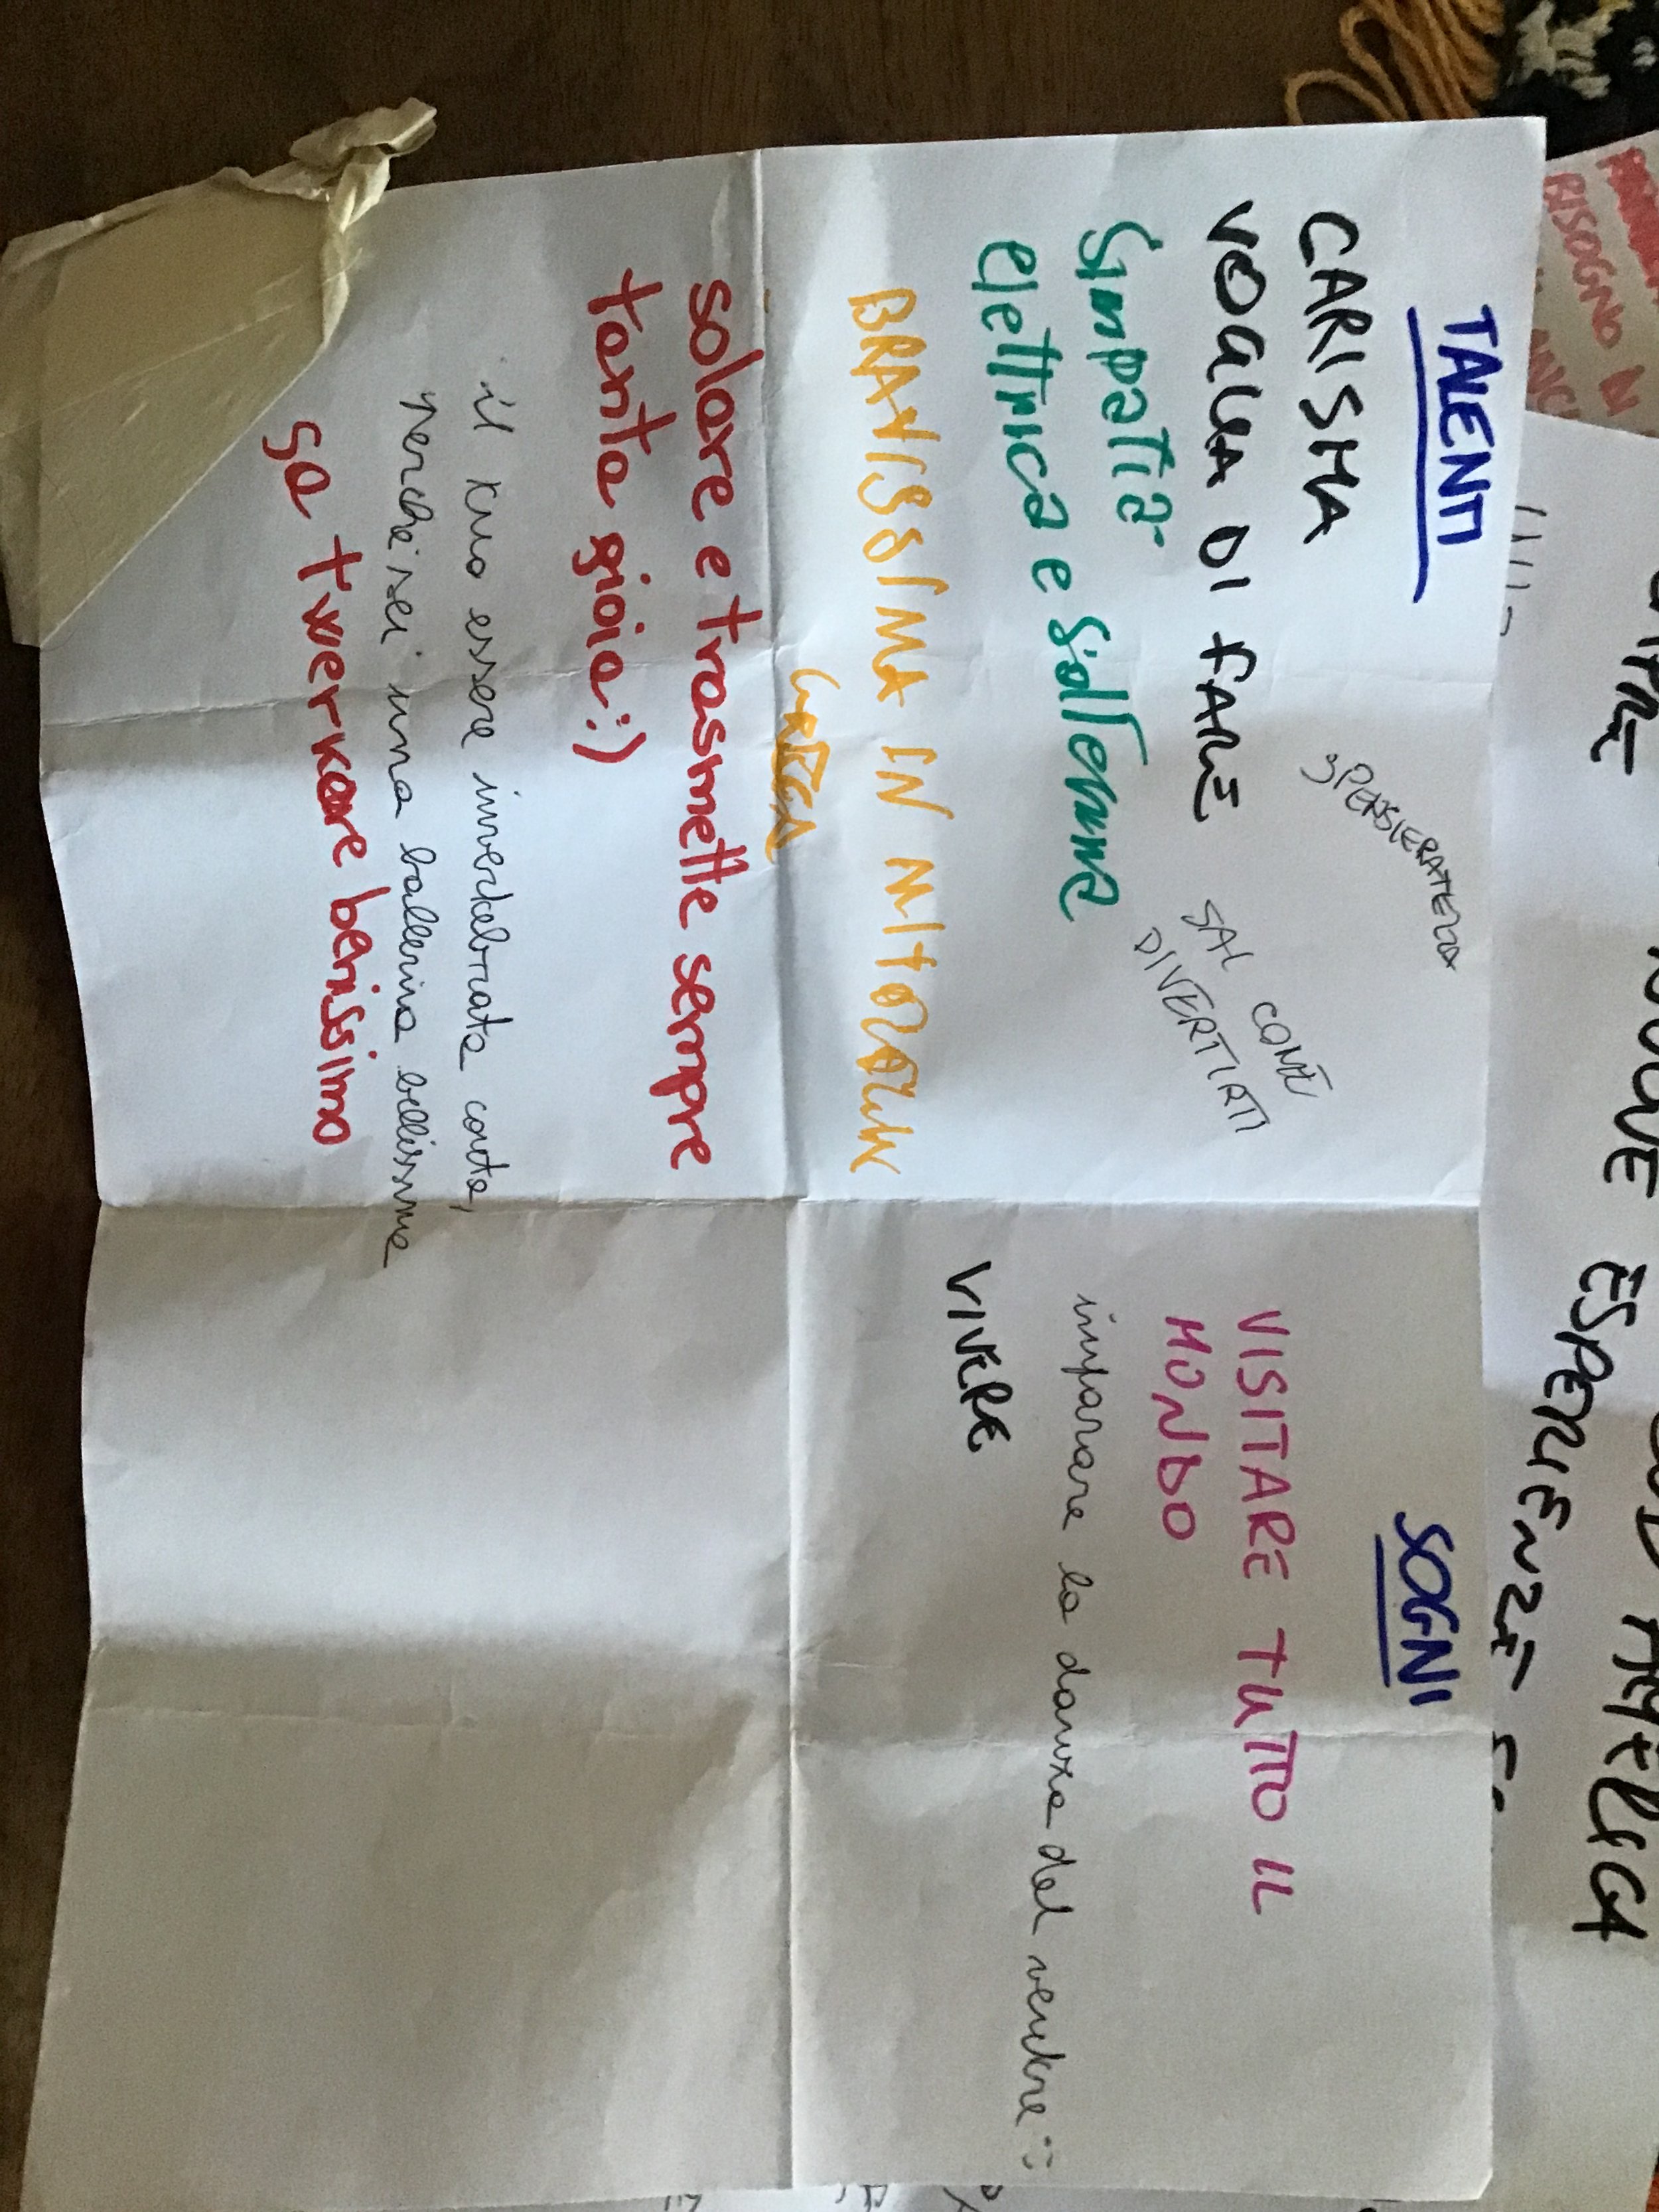 TALENTI
CARISMA
SPENSIERATEZZA
VOGLIA DI FARE
SAI COME
DIVERTIRTI
Simpatia
elettrica e solleranna
BRAVISSIMA IN MITOLOGIA
GRECA
solare e trasmette sempre
tanta gioia :)
il tuo essere invertebrata conta,
perché sei una ballerina bellissima
sa twerkare benissimo
SOGNI
VISITARE TUTTO IL
MONDO
imparare la danza del ventre :)
VIVERE
BISOGNO
NUOVE
ESPERIENZE